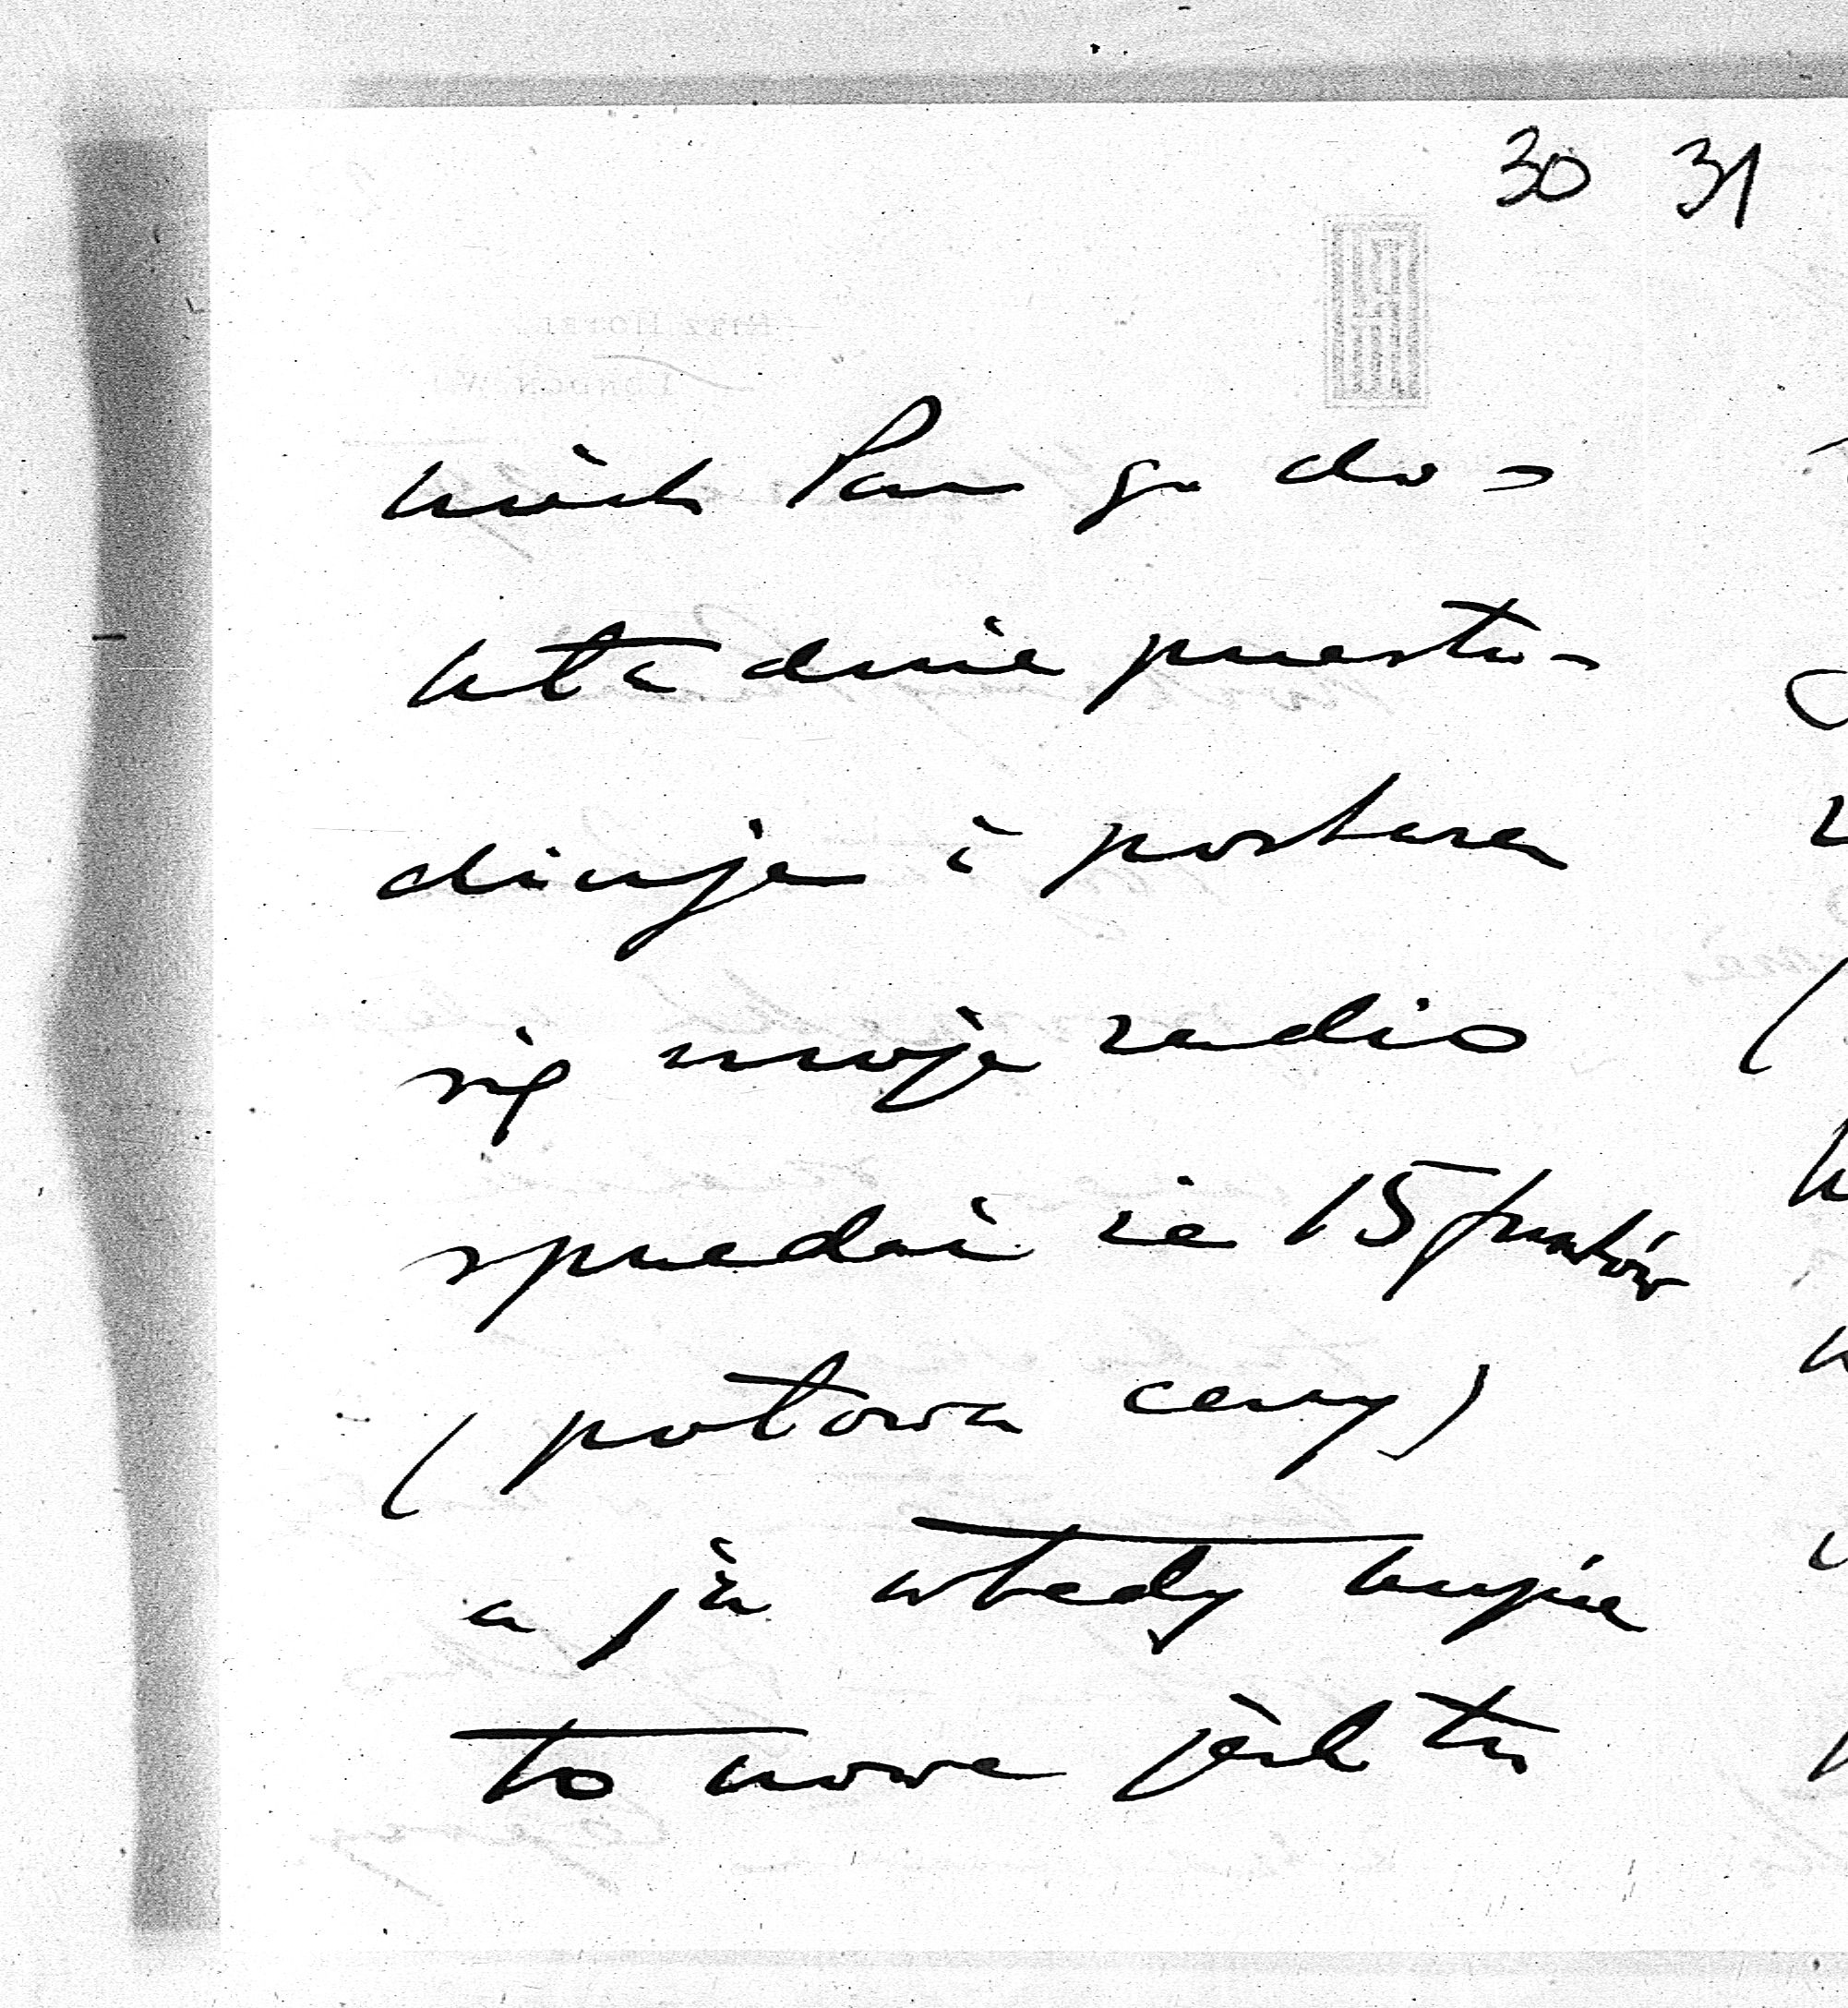 30 31
RITZ HOTEL
LONDON W
niech Pan go do-
kładnie przestu-
diuje i postara
się moje radio
sprzedać za 15 funtów
(połowa ceny)
a ja wtedy kupię
to nowe jeśli tu